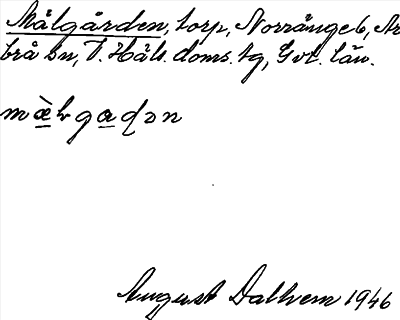 Målgården, torp, Norränge 6, Ar
brå sn, V. Häls. doms. tg, Gvl. län.
mὰlgadən
August Dalhem 1946